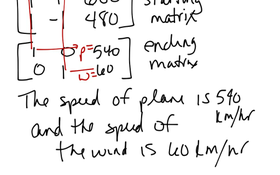 600 starting
- 480 matrix
1 0 p=540 ending
0 1 w=60 matrix
The speed of plane is 540
km/hr
and the speed of
the wind is 60 km/hr